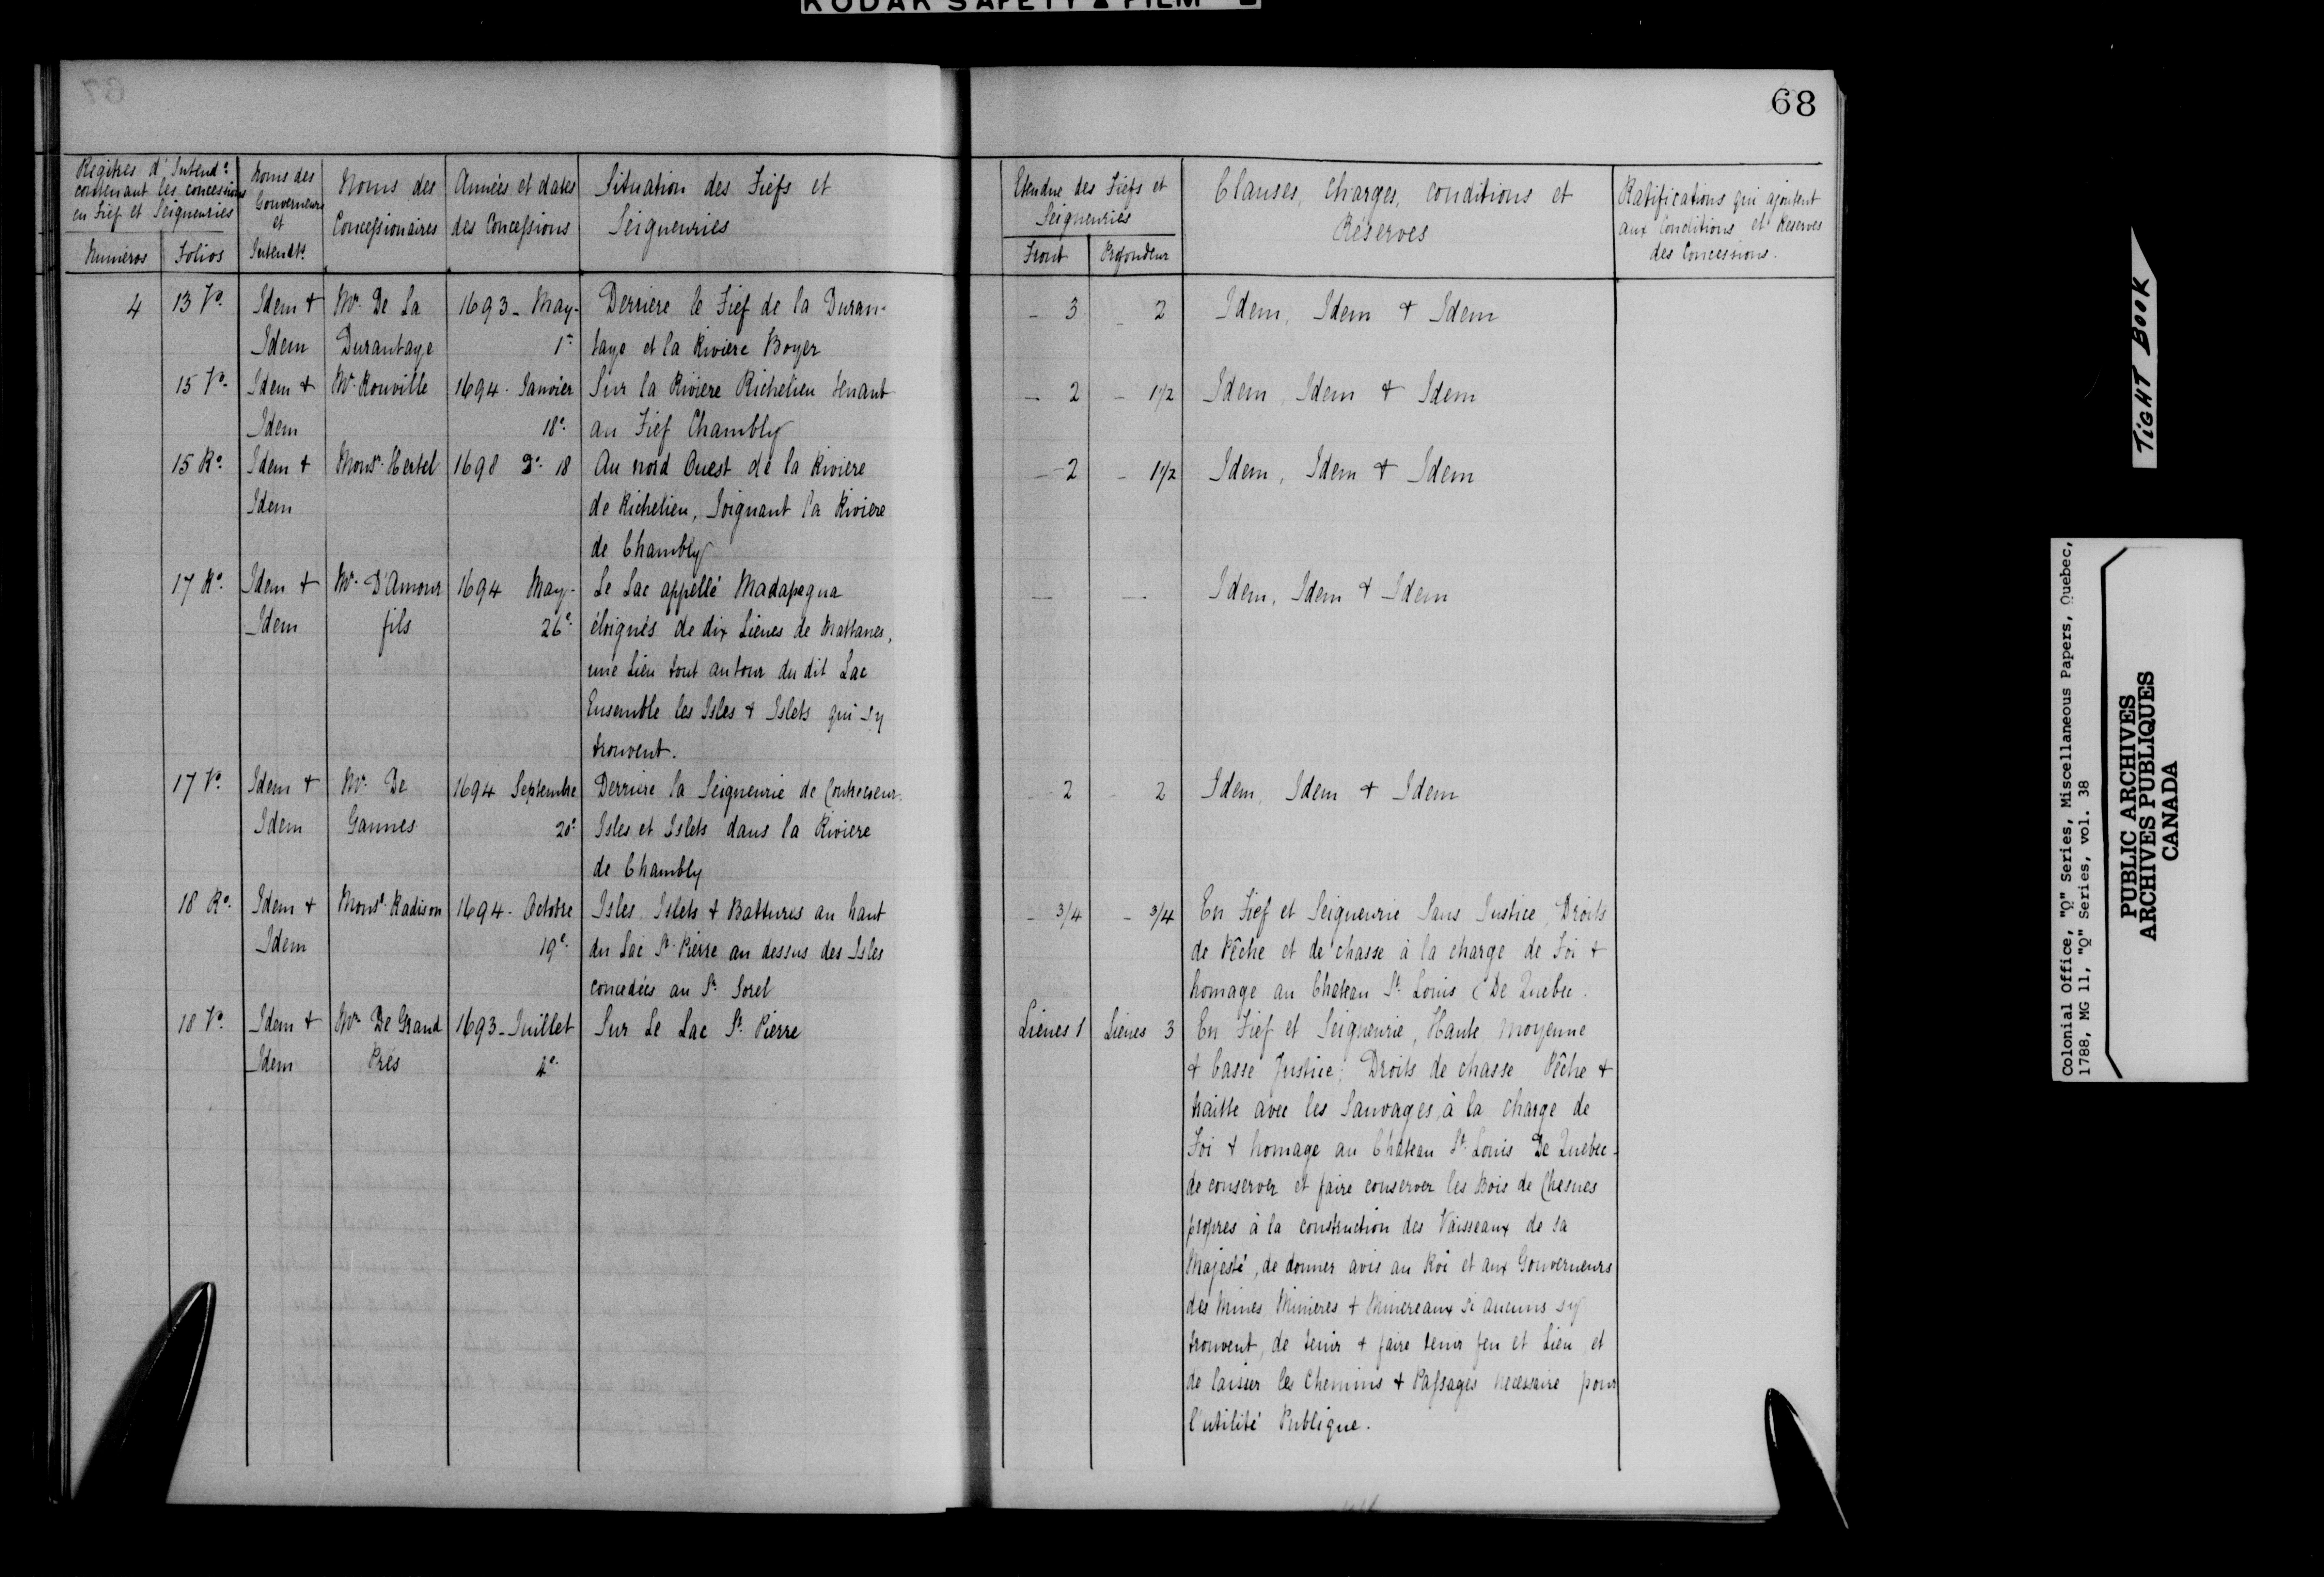 KODAK SAFETY FILM
68
Regitres d'Intend.ce
contenant les concessions
en Fief et Seigneuries
Numéros Folios
Noms des
Gouverneurs
et
Intendts.
Noms des
Concessionaires
Années et dates
des Concessions
Situation des Fiefs et
Seigneuries
Etendue des Fiefs et
Seigneuries
Front Profondeur
Clauses, charges, conditions et
Réserves
Ratifications qui ajoutent
aux Conditions et Reserves
des Concessions.
4 13 Vo. Idem + Mr. De La 1693 - May - Derriere le Fief de la Duran- - 3 - 2 Idem, Idem + Idem
Idem Durantaye 1er taye et la Riviere Boyer
15 Vo. Idem + Mr. Rouville 1694 - Janvier Sur la Riviere Richelieu tenant - 2 - 1 1/2 Idem, Idem + Idem
Idem 18e. au Fief Chambly
15 Ro. Idem + Monsr. Hertel 1698 Do. 18 Au nord Ouest de la Riviere - 2 - 1 1/2 Idem, Idem + Idem
Idem de Richelieu, Joignant la Riviere
de Chambly
17 Ro. Idem + Mr. D'Amour 1694 May - Le Lac appellé Madapegua — — Idem, Idem + Idem
Idem fils 26e. éloignés de dix Lieues de Mattanes,
une Lieu tout autour du dit Lac
Ensemble les Isles + Islets qui s'y
trouvent.
17 Vo. Idem + Mr. De 1694 Septembre Derriere la Seigneurie de Contrecoeur. - 2 - 2 Idem, Idem + Idem
Idem Gannes 20e. Isles et Islets dans la Riviere
de Chambly
18 Ro. Idem + Monsr. Radison 1694 - Octobre Isles, Islets + Battures au haut - 3/4 - 3/4 En Fief et Seigneurie Sans Justice, Droits
Idem 19e. du Lac St. Pierre au dessus des Isles de Pêche et de chasse à la charge de Foi +
concedées au Sr. Sorel homage au Chateau St. Louis De Quebec.
18 Vo. Idem + Mr. De Grand 1693 - Juillet Sur Le Lac St. Pierre Lieues 1 Lieues 3 En Fief et Seigneurie, Haute, moyenne
Idem Prés 4e. + basse Justice; Droits de chasse Pêche +
traitte avec les Sauvages, à la charge de
Foi + homage au Chateau St. Louis De Quebec -
de conserver et faire conserver les Bois de Chesnes
propres à la construction des Vaisseaux de sa
Majesté, de donner avis au Roi et aux Gouverneurs
des Mines, Minieres + Minereaux si aucuns s'y
trouvent, de tenir + faire tenir feu et Lieu, et
de laisser les Chemins + Passages necessaire pour
l'utilité Publique.
TIGHT BOOK
Colonial Office, "Q" Series, Miscellaneous Papers, Quebec,
1788, MG 11, "Q" Series, vol. 38
PUBLIC ARCHIVES
ARCHIVES PUBLIQUES
CANADA